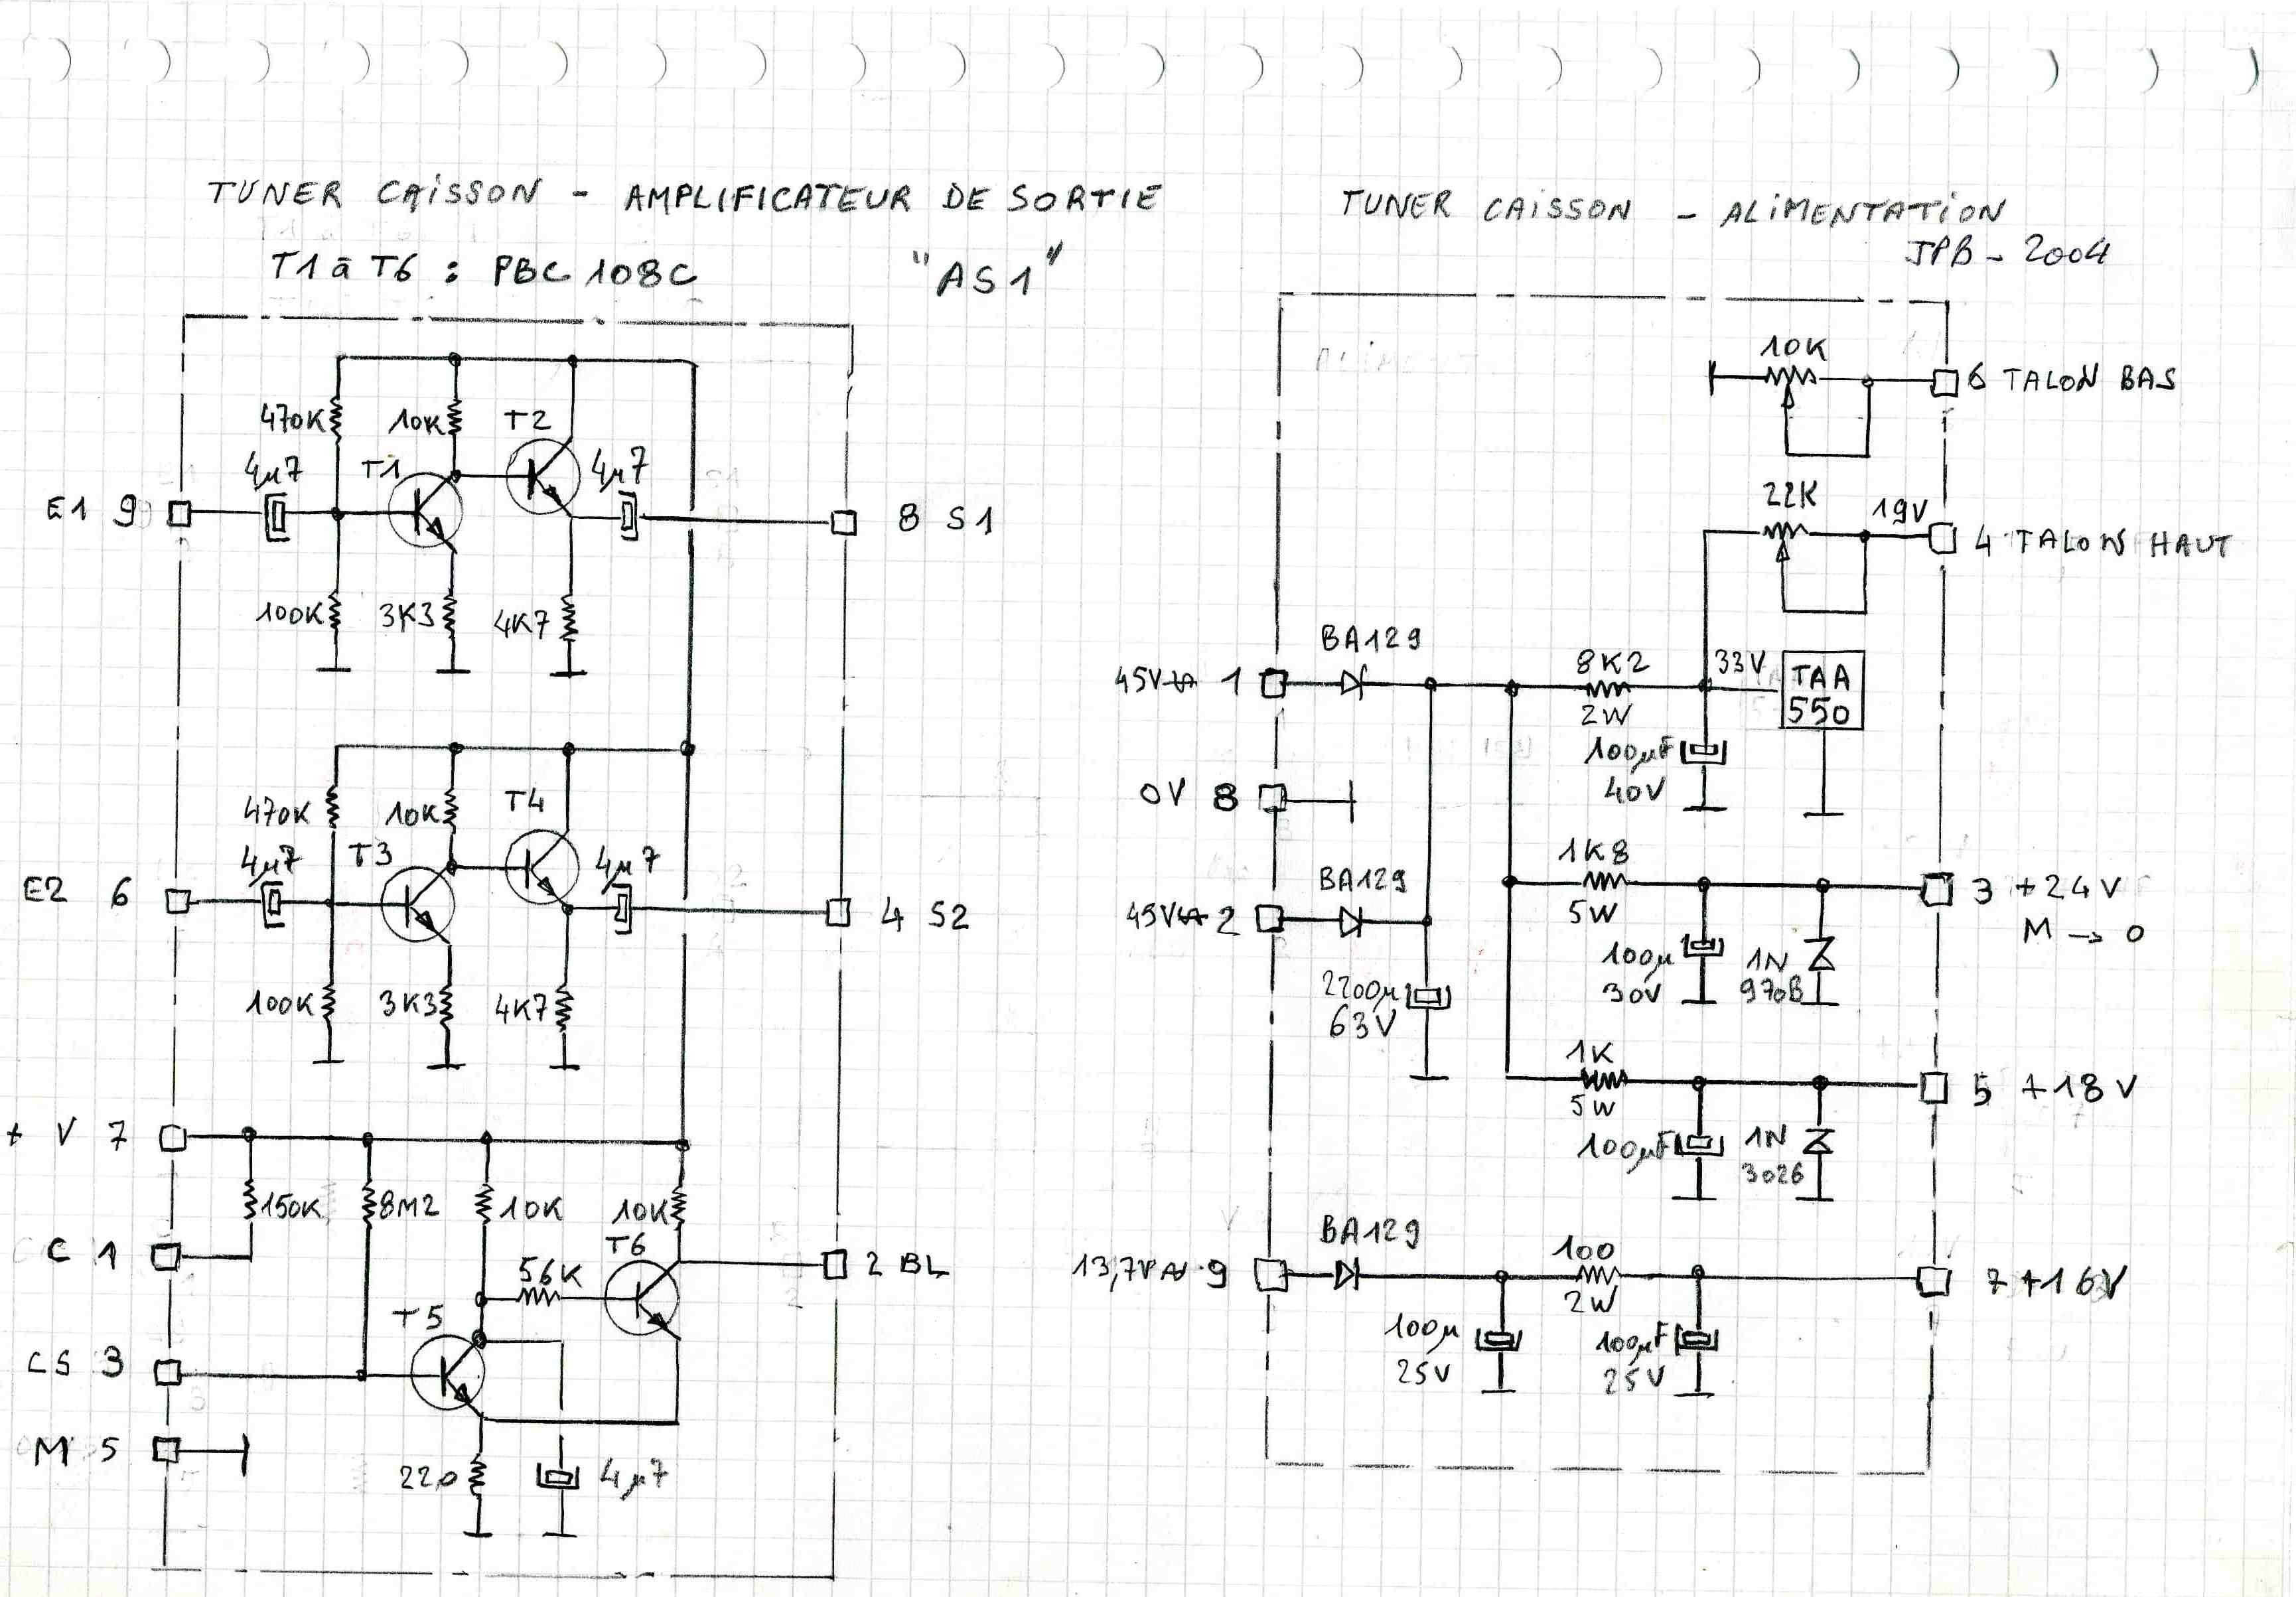 TUNER CAISSON - AMPLIFICATEUR DE SORTIE
T1 à T6 : PBC 108C "AS1"
470K
10K
T2
4µ7
T1
4µ7
E1 9
8 S1
100K
3K3
4K7
470K
10K
T4
4µ7
T3
4µ7
E2 6
4 S2
100K
3K3
4K7
+ V 7
150K
8M2
10K
10K
C 1
T6
2 BL
56K
T5
CS 3
M 5
220
4µ7
TUNER CAISSON - ALIMENTATION
JPB - 2004
10K
6 TALON BAS
22K
19V
4 TALON HAUT
BA129
45V 1
8K2
2W
33V
TAA
550
100µF
40V
0V 8
BA129
45V 2
1K8
5W
3 +24V
M → 0
100µ
30V
1N
970B
2200µ
63V
1K
5W
5 +18V
100µF
1N
3026
BA129
13,7V 9
100
2W
7 +16V
100µ
25V
100µF
25V